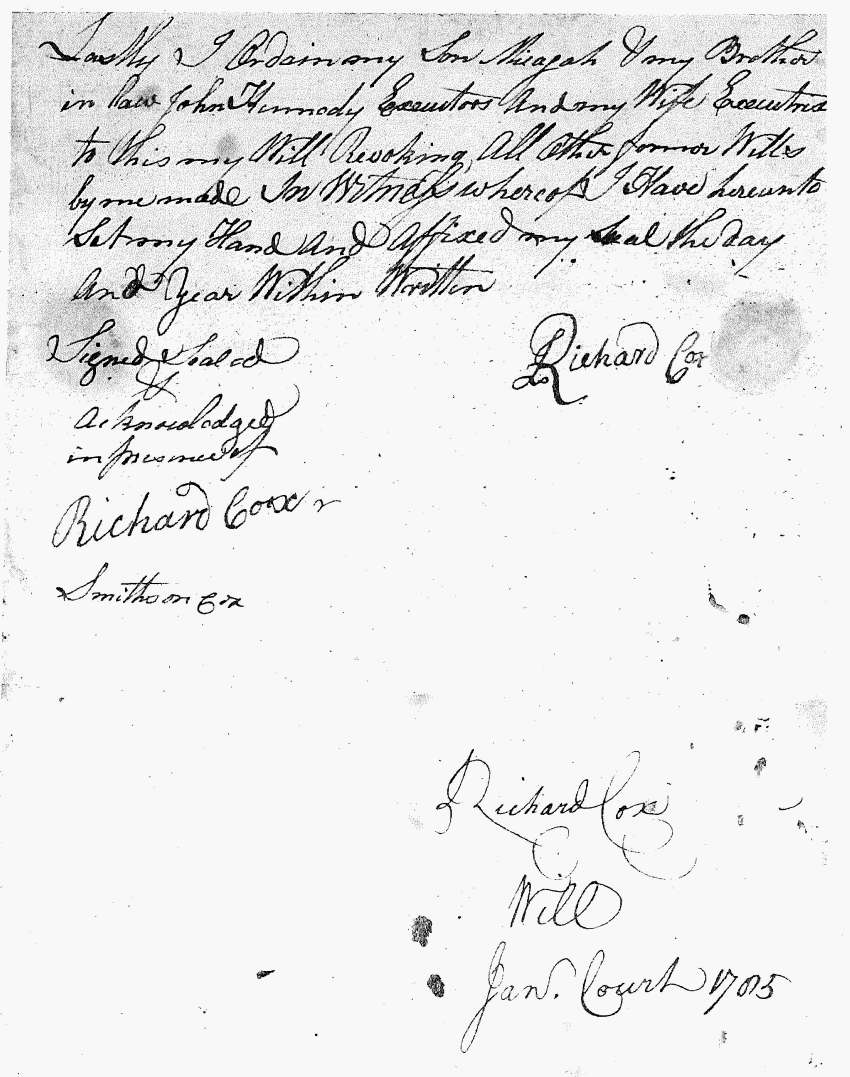 Lastly I Ordain my Son Micagah & my Brother
in law John Kennedy Executors And my Wife Executrix
to this my Will Revoking All Other former Wills
by me made In Witness whereof I Have hereunto
Set my Hand And Affixed my Seal the day
And Year Within Written
Signed Sealed
&
Acknowledged
in presence of
Richard Cox
Richard Cox r
Smithson Cox
Richard Cox
Will
Jan. Court